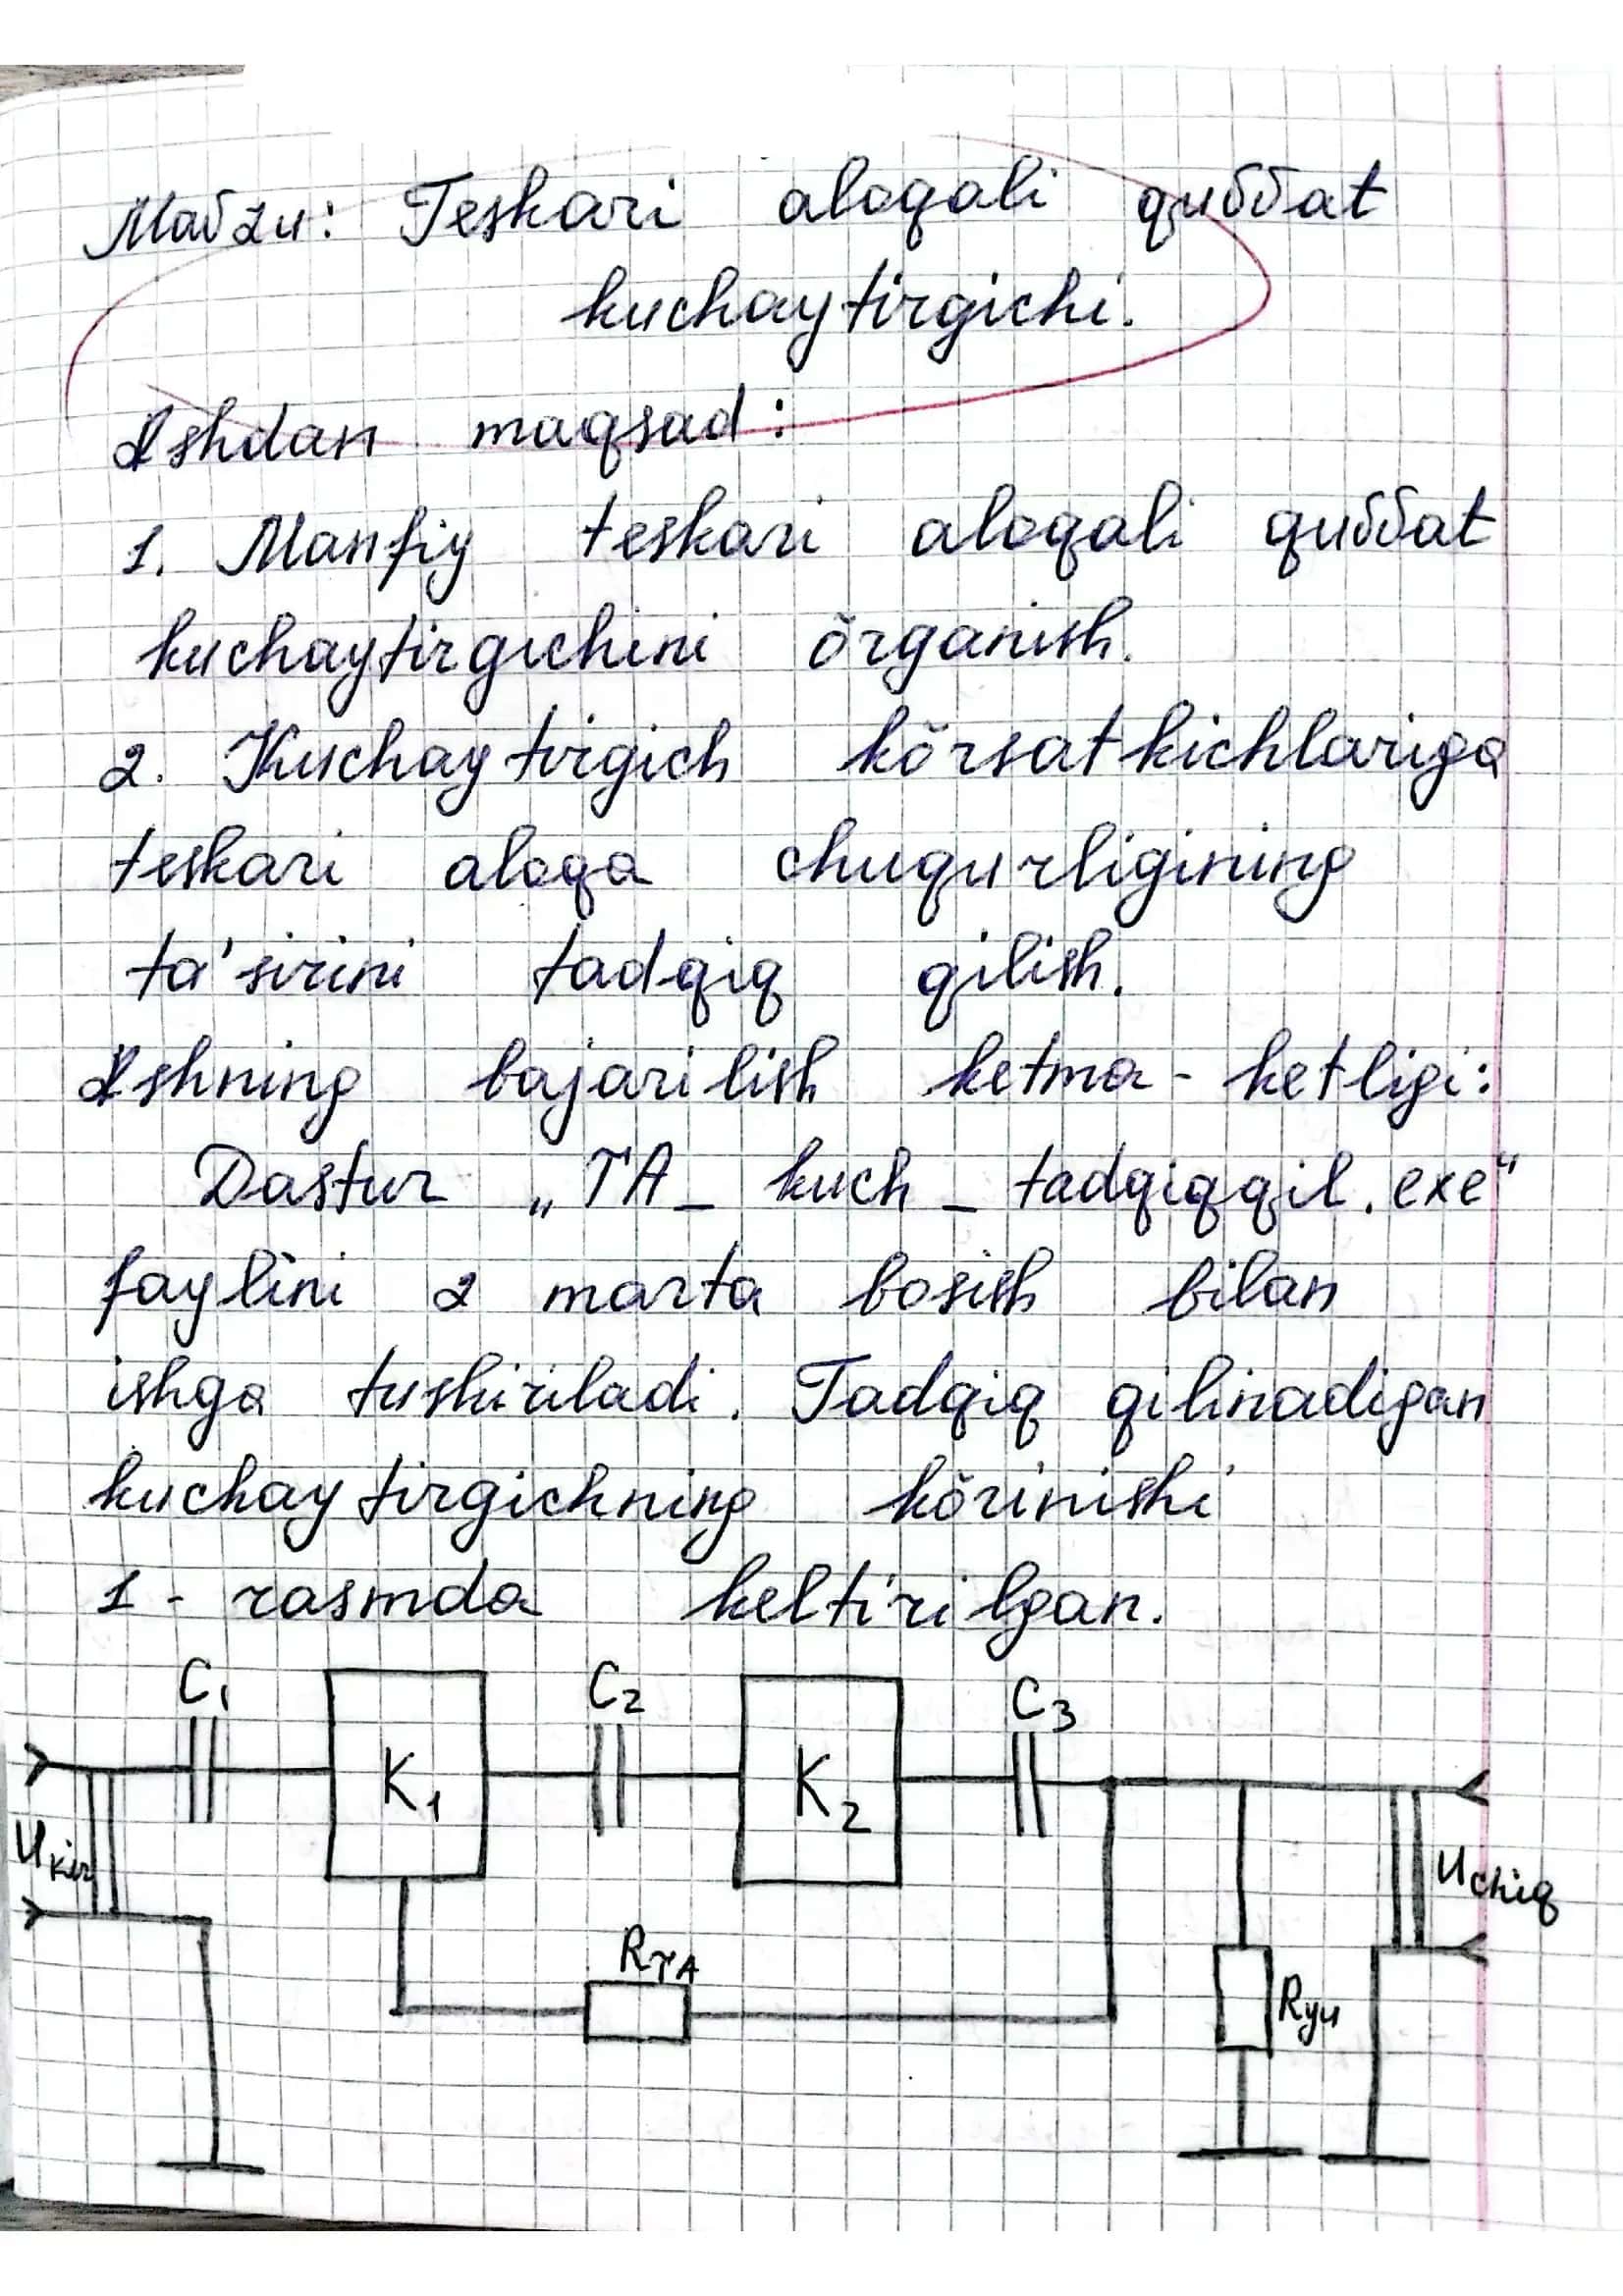 Mavzu: Teskari aloqali quvvat
kuchaytirgichi.
Ishdan maqsad:
1. Manfiy teskari aloqali quvvat
kuchaytirgichini õrganish.
2. Kuchaytirgich kõrsatkichlariga
teskari aloqa chuqurligining
ta'sirini tadqiq qilish.
Ishning bajarilish ketma-ketligi:
Dastur „TA_kuch_tadqiqqil.exe“
faylini 2 marta bosish bilan
ishga tushiriladi. Tadqiq qilinadigan
kuchaytirgichning kõrinishi
1-rasmda keltirilgan.
C1 C2 C3
K1 K2
Ukir Uchiq
RTA
Ryu